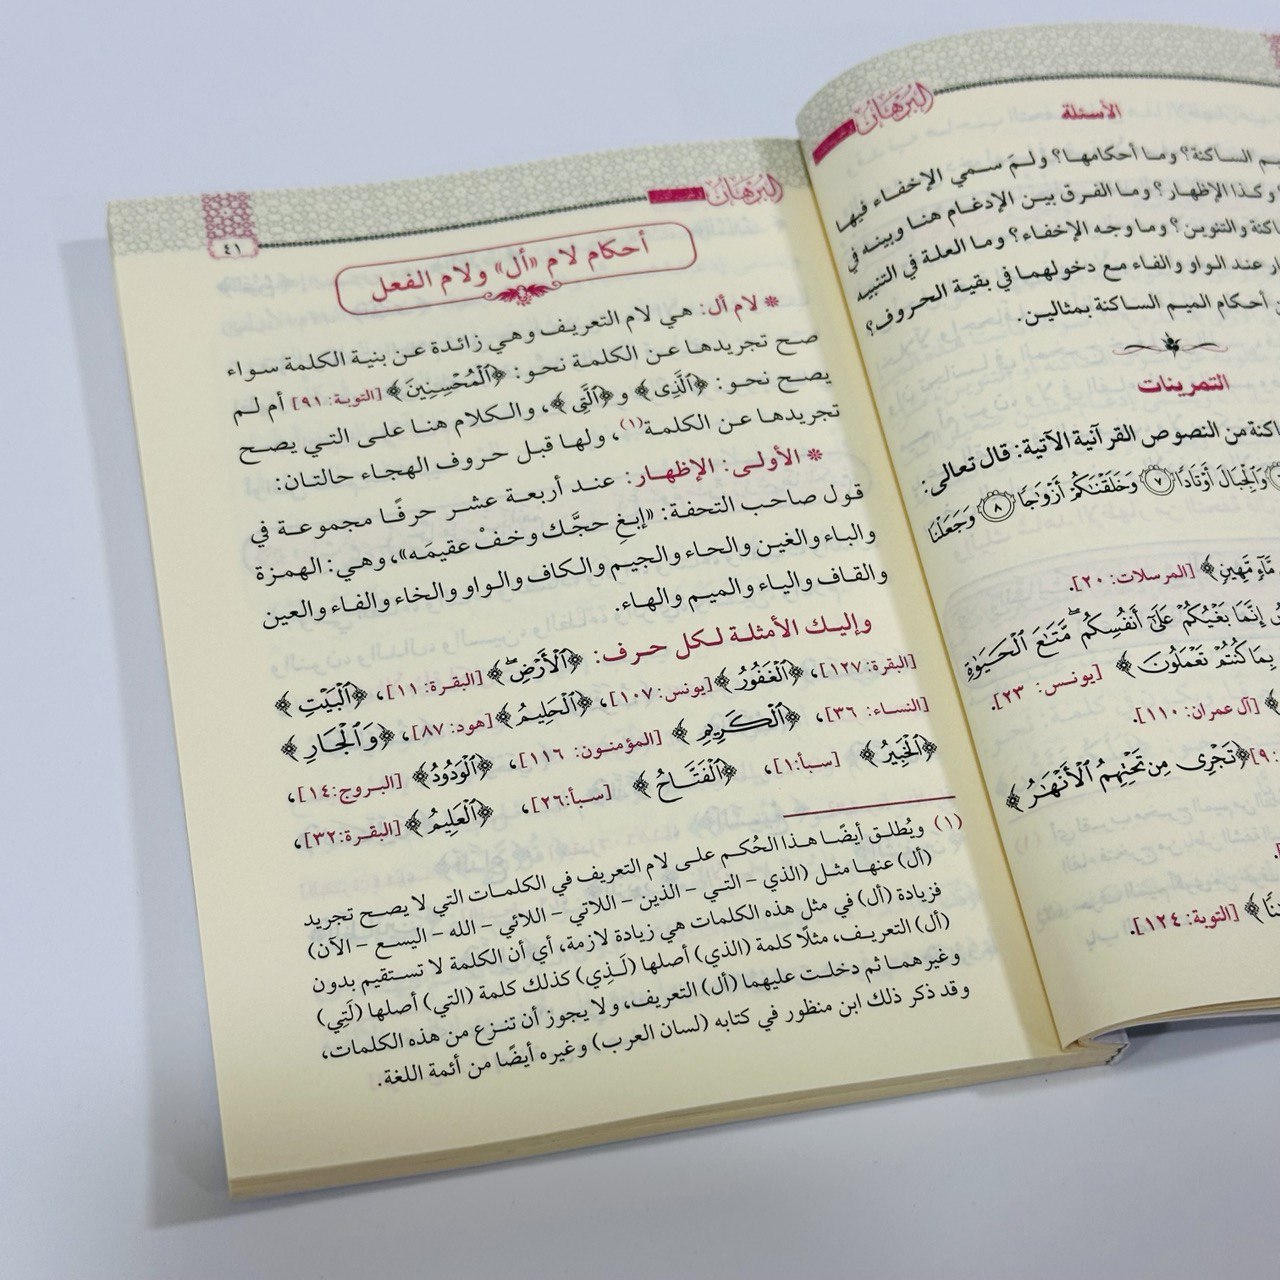 البرهان
الأسئلة
ـم الساكنة؟ وما أحكامها؟ ولمَ سمي الإخفاء فيها
وكذا الإظهار؟ وما الفرق بين الإدغام هنا وبينه في
ـاكنة والتنوين؟ وما وجه الإخفاء؟ وما العلة في التنبيه
ـار عند الواو والفاء مع دخولهما في بقية الحروف؟
أحكام الميم الساكنة بمثالين.
التمرينات
ـاكنة من النصوص القرآنية الآتية: قال تعالى:
وَٱلۡجِبَالَ أَوۡتَادٗا ٧ وَخَلَقۡنَٰكُمۡ أَزۡوَٰجٗا ٨ وَجَعَلۡنَا
مَّآءٖ مَّهِينٖ﴾ [المرسلات: ٢٠].
إِنَّمَا بَغۡيُكُمۡ عَلَىٰٓ أَنفُسِكُمۖ مَّتَٰعَ ٱلۡحَيَوٰةِ
بِمَا كُنتُمۡ تَعۡمَلُونَ﴾ [يونس: ٢٣].
[آل عمران: ١١٠].
٩: ﴿تَجۡرِي مِن تَحۡتِهِمُ ٱلۡأَنۡهَٰرُ﴾
[التوبة: ١٢٤].
البرهان
٤١
أحكام لام «أل» ولام الفعل
* لام أل: هي لام التعريف وهي زائدة عن بنية الكلمة سواء
صح تجريدها عن الكلمة نحو: ﴿ٱلۡمُحۡسِنِينَ﴾ [التوبة: ٩١] أم لم
يصح نحو: ﴿ٱلَّذِي﴾ و﴿ٱلَّتِي﴾، والكلام هنا على التي يصح
تجريدها عن الكلمة(١)، ولها قبل حروف الهجاء حالتان:
* الأولى: الإظهار: عند أربعة عشر حرفًا مجموعة في
قول صاحب التحفة: «إبغِ حجَّك وخفْ عقيمَه»، وهي: الهمزة
والباء والغين والحاء والجيم والكاف والواو والخاء والفاء والعين
والقاف والياء والميم والهاء.
وإليك الأمثلة لكل حرف: ﴿ٱلۡأَرۡضِۖ﴾ [البقرة: ١١]، ﴿ٱلۡبَيۡتِ﴾
[البقرة: ١٢٧]، ﴿ٱلۡغَفُورُ﴾ [يونس: ١٠٧]، ﴿ٱلۡحَلِيمُ﴾ [هود: ٨٧]، ﴿وَٱلۡجَارِ﴾
[النساء: ٣٦]، ﴿ٱلۡكَرِيمِ﴾ [المؤمنون: ١١٦]، ﴿ٱلۡوَدُودُ﴾ [البروج: ١٤]،
﴿ٱلۡخَبِيرُ﴾ [سبأ: ١]، ﴿ٱلۡفَتَّاحُ﴾ [سبأ: ٢٦]، ﴿ٱلۡعَلِيمُ﴾ [البقرة: ٣٢]،
(١) ويُطلق أيضًا هذا الحُكم على لام التعريف في الكلمات التي لا يصح تجريد
(أل) عنها مثل (الذي – التي – الذين – اللاتي – اللائي – الله – اليسع – الآن)
فزيادة (أل) في مثل هذه الكلمات هي زيادة لازمة، أي أن الكلمة لا تستقيم بدون
(أل) التعريف، مثلًا كلمة (الذي) أصلها (لَذِي) كذلك كلمة (التي) أصلها (لَتِي)
وغيرهما ثم دخلت عليهما (أل) التعريف، ولا يجوز أن تنزع من هذه الكلمات،
وقد ذكر ذلك ابن منظور في كتابه (لسان العرب) وغيره أيضًا من أئمة اللغة.